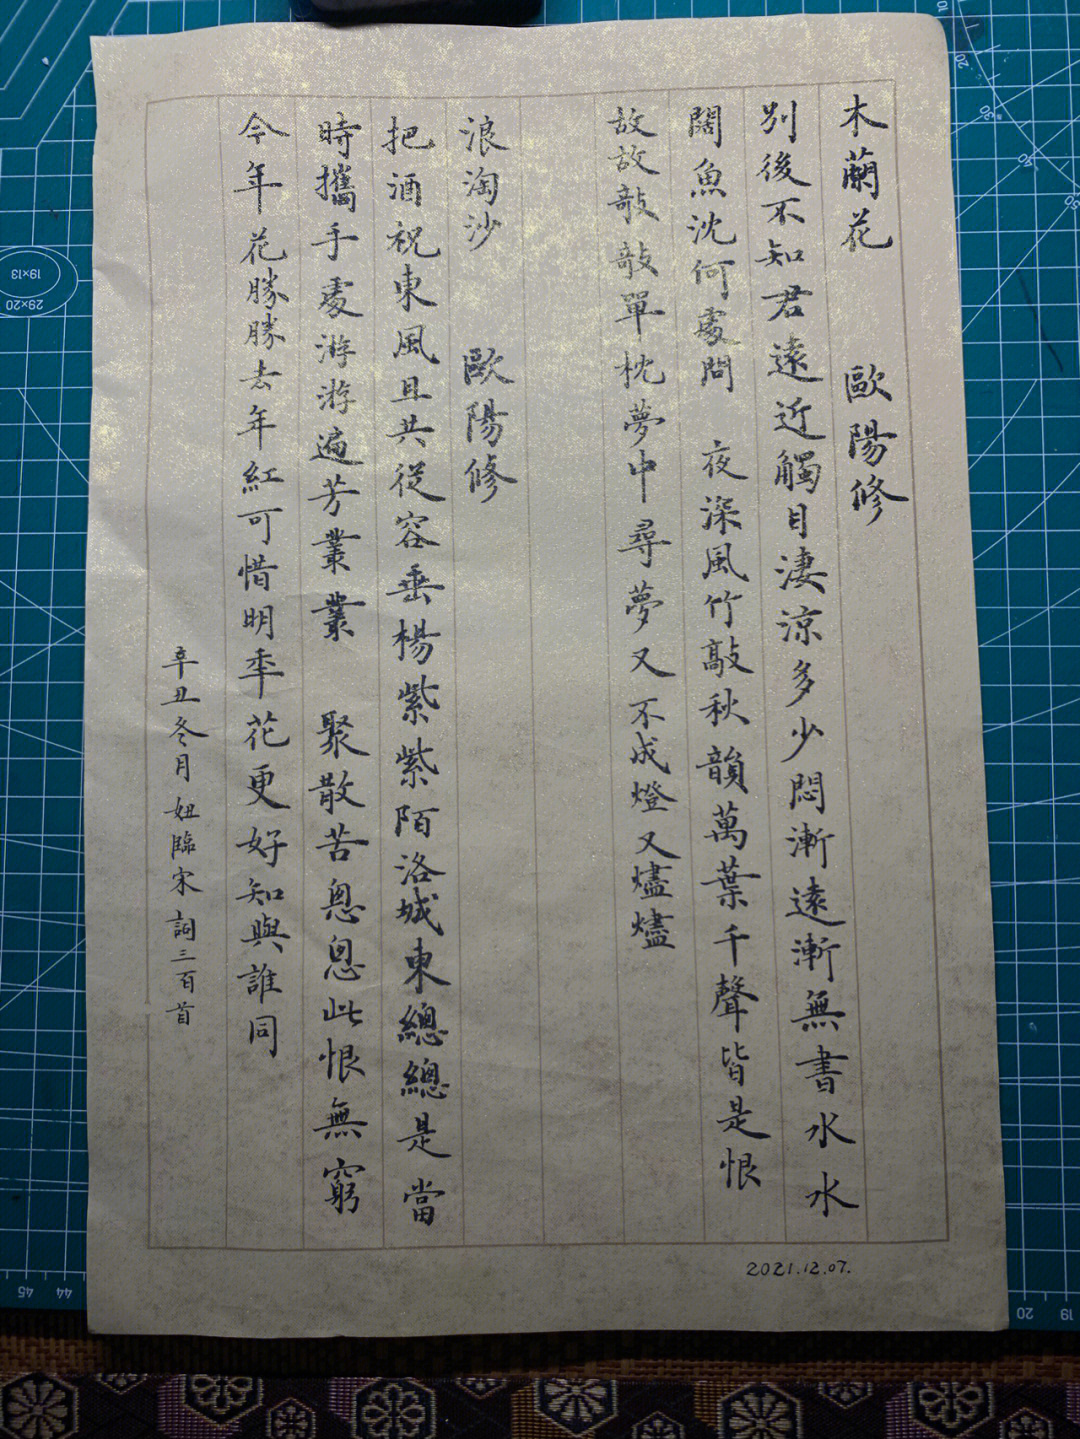 木蘭花 歐陽修
別後不知君遠近觸目淒涼多少悶漸遠漸無書水水
闊魚沈何處問 夜深風竹敲秋韻萬葉千聲皆是恨
故故敧敧單枕夢中尋夢又不成燈又燼燼
浪淘沙 歐陽修
把酒祝東風且共從容垂楊紫紫陌洛城東總總是當
時攜手處游游遍芳叢叢 聚散苦悤悤此恨無窮
今年花勝勝去年紅可惜明年花更好知與誰同
辛丑冬月 妞臨宋詞三百首
2021.12.07.
19×13
29×20
45 44
20 19